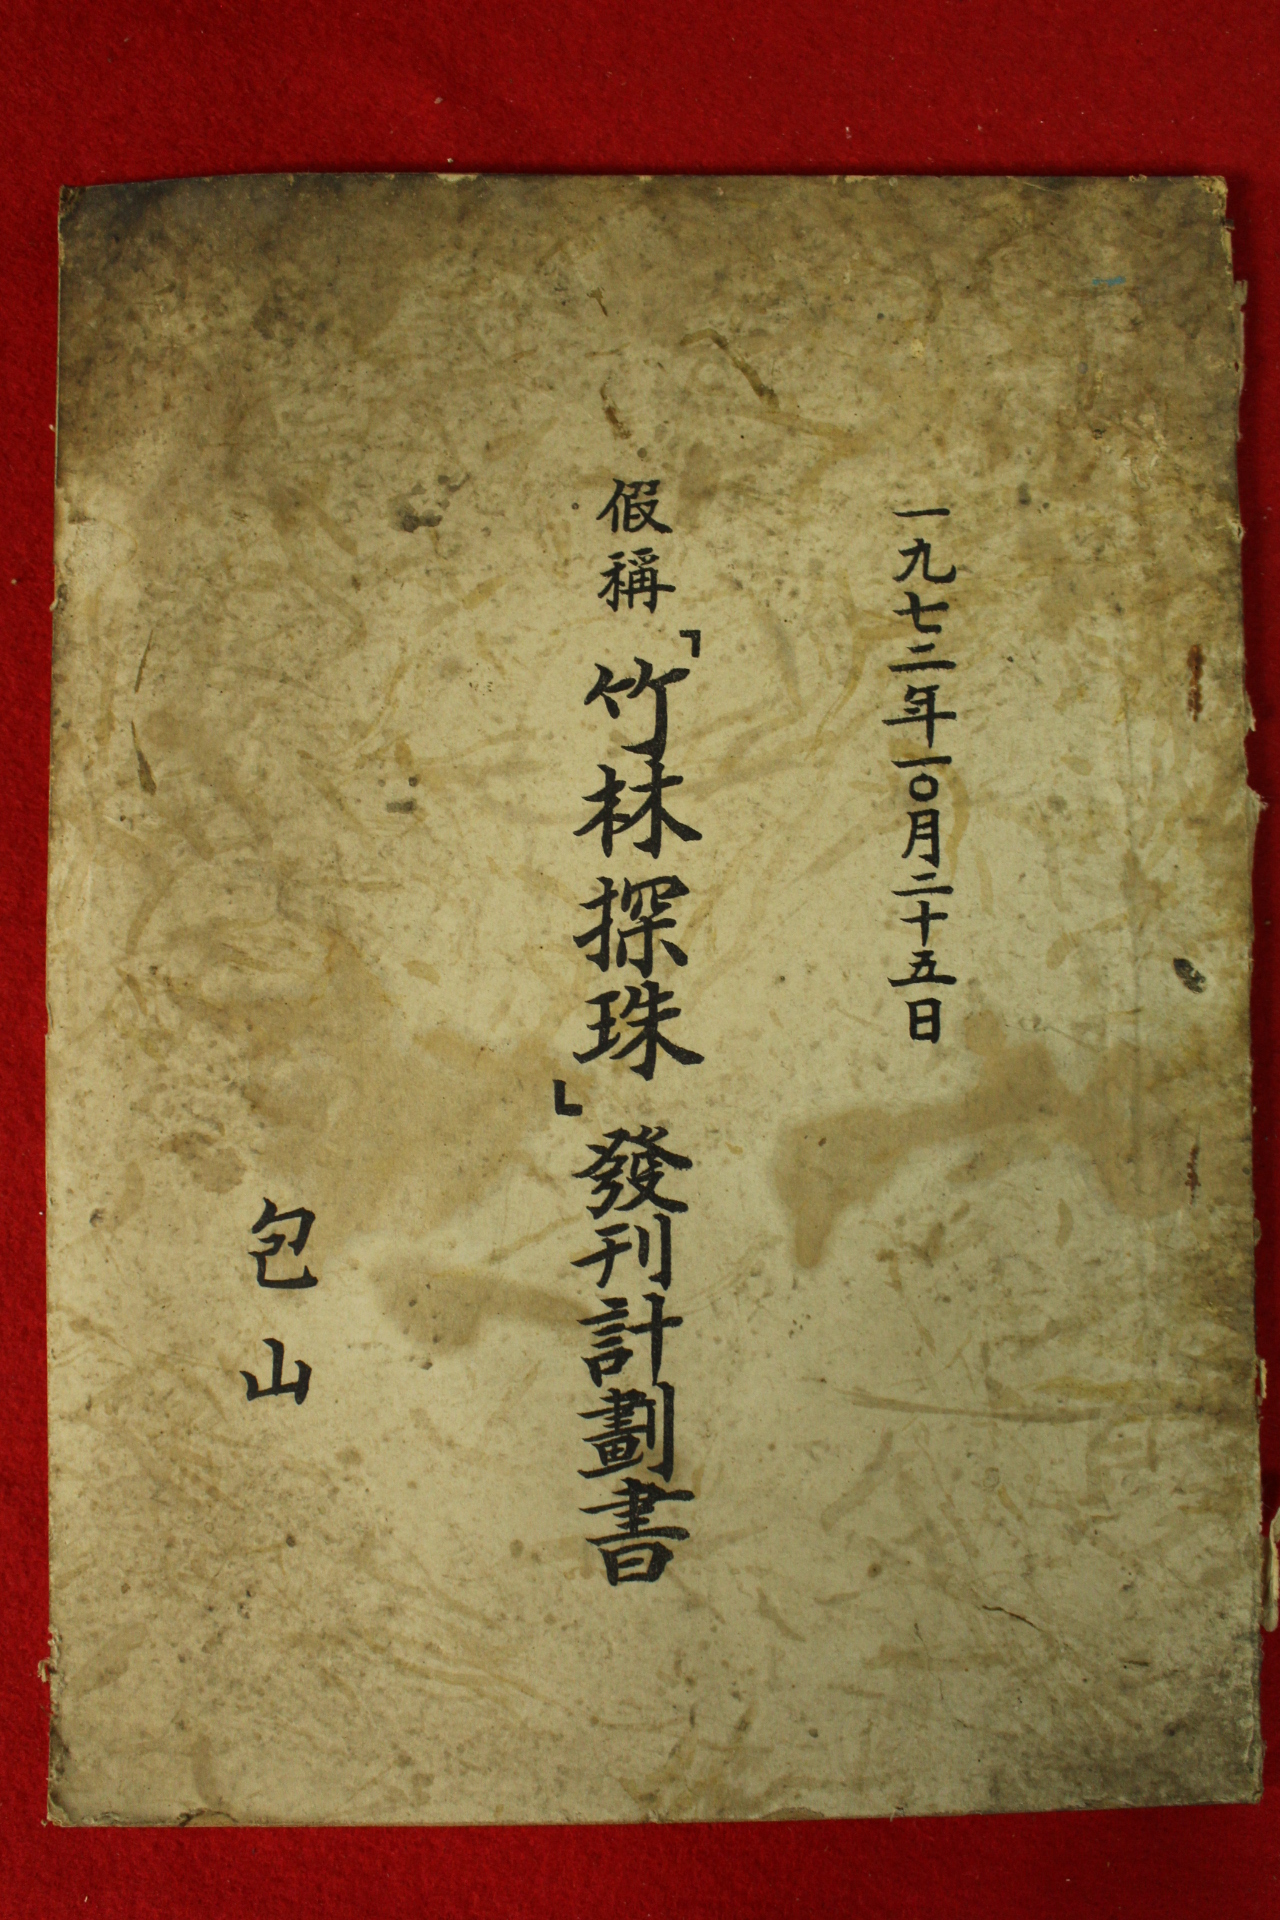 一九七二年一〇月二十五日
假稱「竹林探珠」發刊計劃書
包山